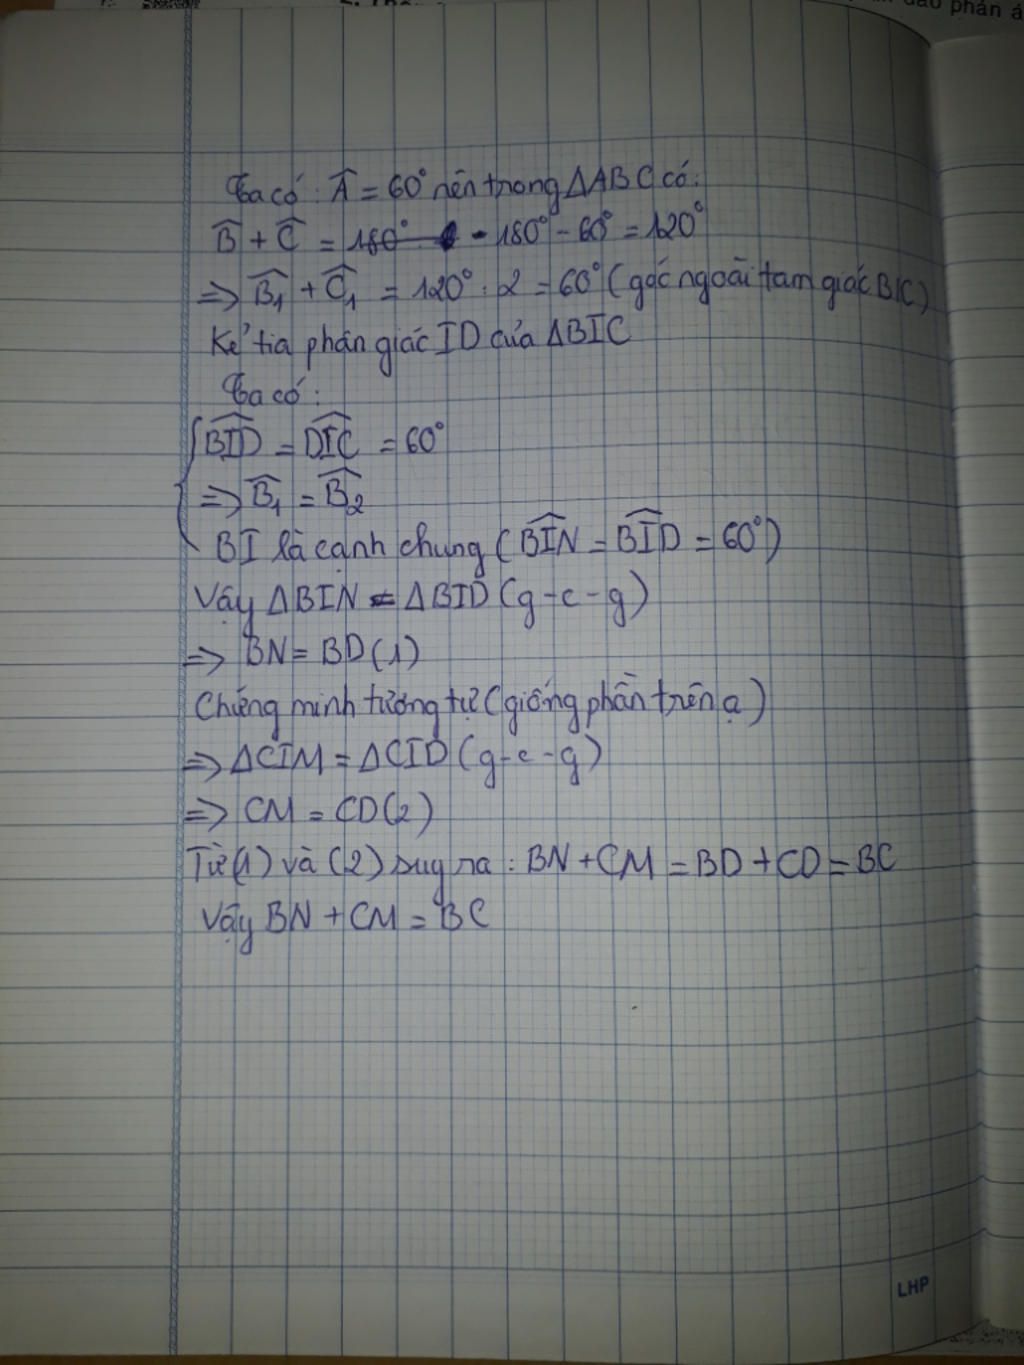 dao phản á
Ta có: Â = 60° nên trong ΔABC có:
B̂ + Ĉ = 180° - 180° - 60° = 120°
=> B̂₁ + Ĉ₁ = 120° : 2 = 60° (góc ngoài tam giác BIC)
Kẻ tia phân giác ID của ΔBIC
Ta có:
{ BÎD = DÎC = 60°
=> B̂₁ = B̂₂
BI là cạnh chung (BÎN = BÎD = 60°)
Vậy ΔBIN = ΔBID (g-c-g)
=> BN = BD (1)
Chứng minh tương tự (giống phần trên ạ)
=> ΔCIM = ΔCID (g-c-g)
=> CM = CD (2)
Từ (1) và (2) suy ra : BN + CM = BD + CD = BC
Vậy BN + CM = BC
LHP